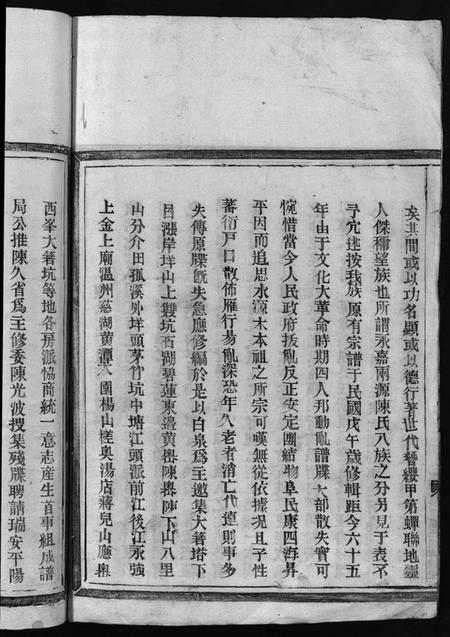 矣其間或以功名顯或以德行著世代簪纓甲第蟬聯地靈
人傑稱望族也所謂永嘉兩源陳氏八族之分另見于表不
予冗述按我族原有宗譜于民國戊午歲修輯距今六十五
年由于文化大革命時期四人邦動亂譜牒大部散失實可
惋惜當今人民政府拔亂反正安定團結物阜民康四海昇
平因而追思水源木本祖之所宗可嘆無從依據况且子性
蕃衍戸口散佈雁行易亂深恐年久老者消亡代遠則事多
失傳原牒既失急應修編於是以白泉爲主邀集大箬塔下
呂漈岸垟山上雙坑百湖碧蓮東邊黄㟖陳㟖陳下山八里
山分介田孤溪外垟頭茅竹坑中塘江頭派前江後江永強
上金上廟温州慈湖黄潭 圍楊山槎奥湯店蔣兒山廳㟖
西峯大箬坑等地各房派協商統一意志産生首事組成譜
局公推陳久省爲主修委陳光波搜集殘牒聘請瑞安平陽